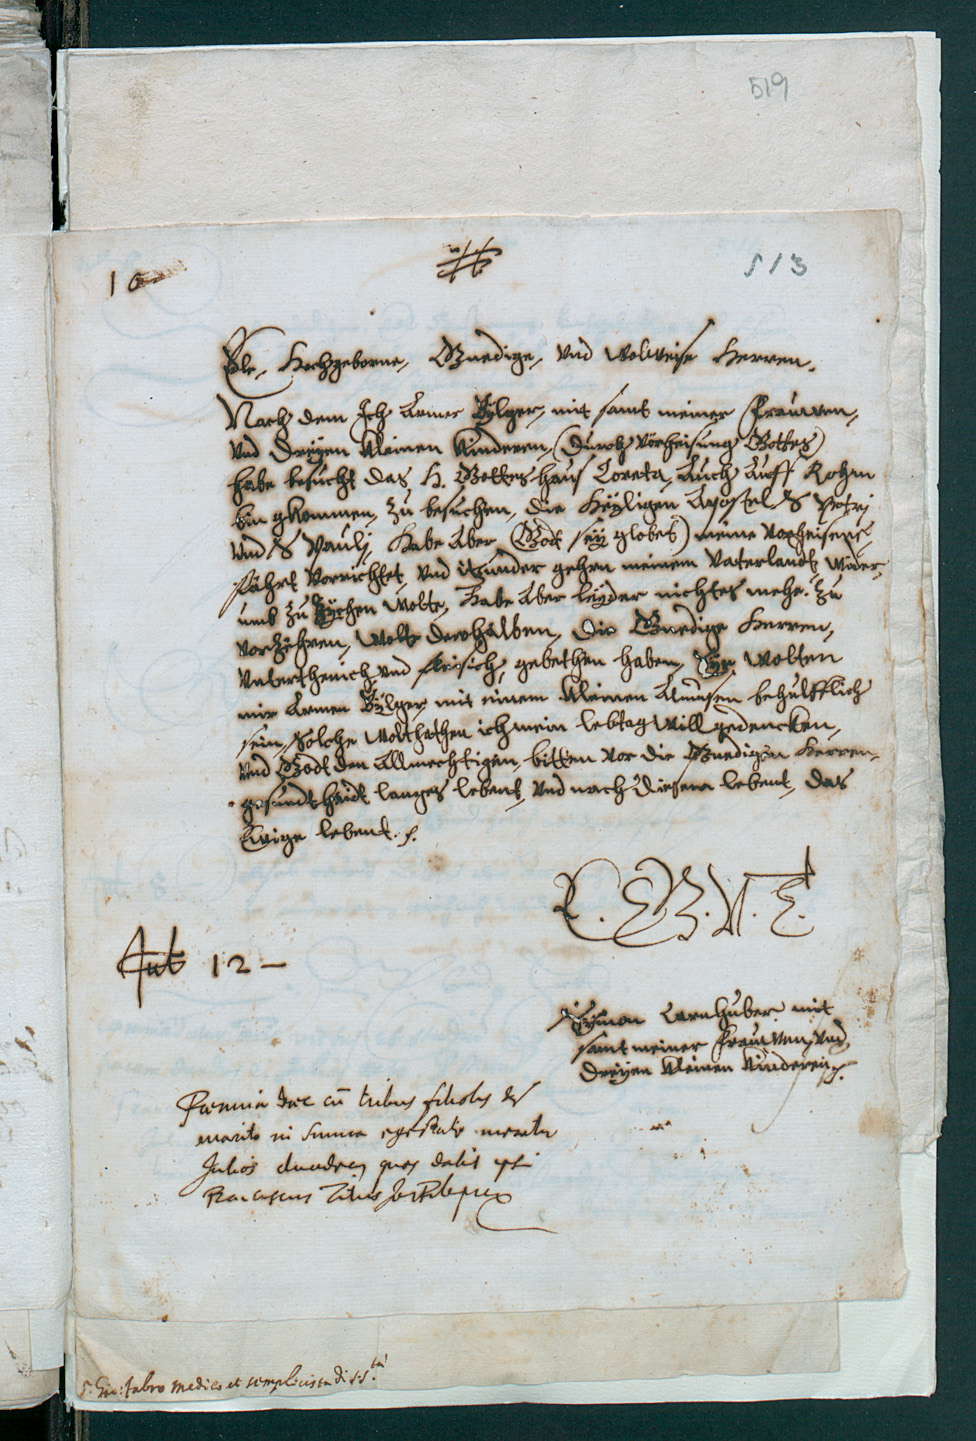 519
10
513
Edle, Hochgeborne, Gnedige, und wolweise Herren,
Nach dem Ich Armer Bylger, mit samt meiner Frauwen,
und dreyen kleinen Kinderen, (durch vorheisung Gottes)
habe besucht das H. Gottes haus Loreta, Auch auff Rohm
bin gkommen, zu besuchen, die Heyligen Apostel S Petrj
und S Paulj, Habe aber (Gott sey globet) meine vorheisene
fahrt vorrichtet, und itzunder gehrn meinem Vaterlandt wider-
umb zu zychen wolte, habe aber leyder nichtes mehr zu
vorzehren, wolte derohalben, die Gnedige Herren,
untertheinich und gebethen haben, Sye wolten
mir Armen Bylger mit einem kleinen Almusen behulfflich
sein, solche wolthathen ich mein lebtag will gedencken,
und Godt den Allmechtigen, bitten vor die Gnedigen Herren,
gesundtheidt langes lebent, und nach diesem lebent, das
Ewige lebent.
E. G. U.
Jul 12 —
Symon Lernhuber mit
samt meiner Frauwen, und
dreyen kleinen Kinderen
Foemina haec cū tribus filiolis et
marito in summa egestate meretur
Julios duodecim quos dabit
Franciscus
Gio: fabro medico et semplicista di S.